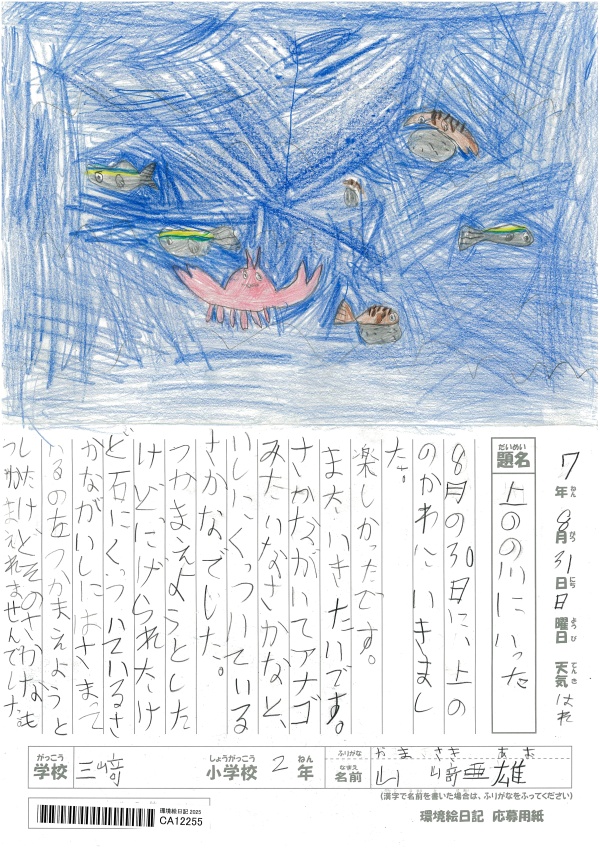 7年 8月 31日 日曜日 天気 はれ
ねん がつ にち ようび てんき
だいめい
題名
上のの川にいった
8月の30日に、上の
のかわに いきまし
た。
楽しかったです。
またいきたいです。
さかながいてアナゴ
みたいなさかなと、
いしにくっついている
さかなでした。
つかまえようとした
けどにげられたけ
ど石にくっついているさ
かながいしにはさまって
いるの左つかまえようと
したけどそのさかなも
つかまえれませんでした。
がっこう しょうがっこう ねん ふりがな やま さき あお
学校 三﨑 小学校 2年 なまえ 名前 山﨑亜雄
(漢字で名前を書いた場合は、ふりがなをふってください)
環境絵日記 2025
CA12255
環境絵日記 応募用紙